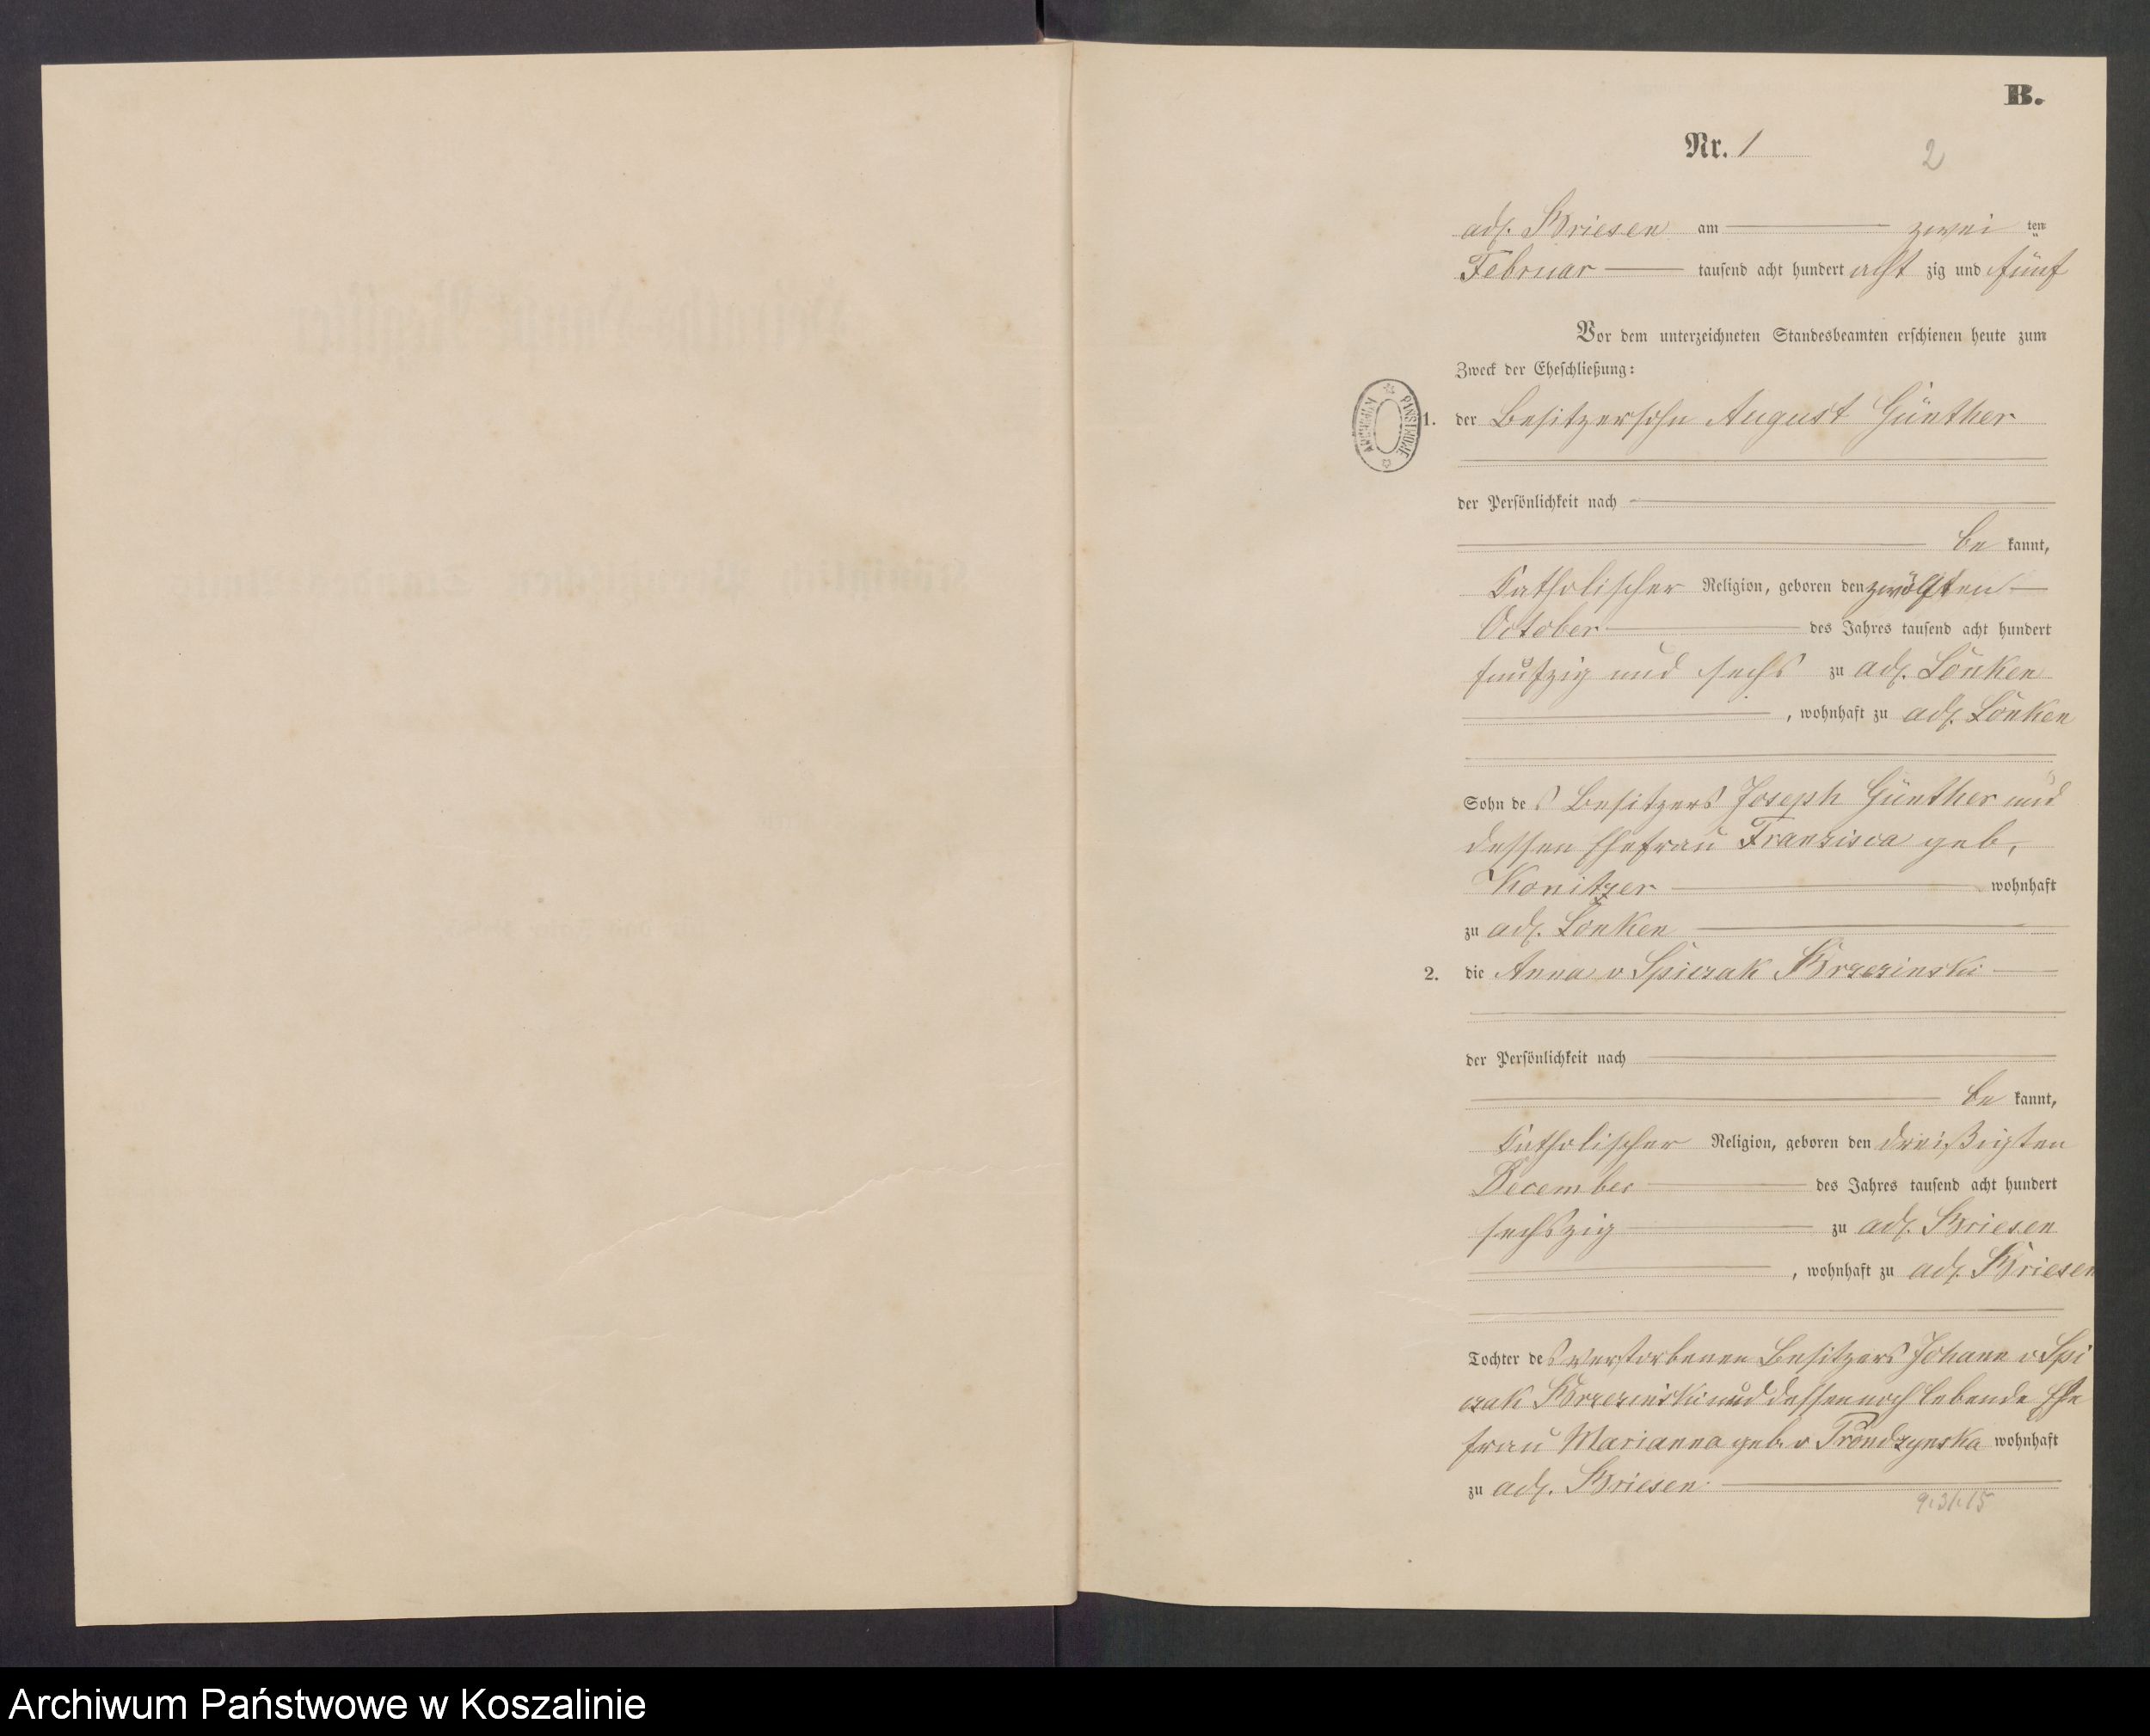 B.
Nr. 1
2
adl. Briesen am zwei ten
Februar tausend acht hundert acht zig und fünf
Vor dem unterzeichneten Standesbeamten erschienen heute zum
Zweck der Eheschließung:
ARCHIWUM PAŃSTWOWE
1. der Besitzersohn August Günther
der Persönlichkeit nach
be kannt,
Catholischer Religion, geboren den zwölften
October des Jahres tausend acht hundert
funfzig und sechs zu adl. Lonken
, wohnhaft zu adl. Lonken
Sohn des Besitzers Joseph Günther und
dessen Ehefrau Franzisca geb.
Konitzer wohnhaft
zu adl. Lonken
2. die Anna v Spiczak Brzezinski
der Persönlichkeit nach
be kannt,
Catholischer Religion, geboren den dreißigten
December des Jahres tausend acht hundert
sechszig zu adl. Briesen
, wohnhaft zu adl. Briesen
Tochter des verstorbenen Besitzers Johann v Spi
czak Brzezinski und dessen noch lebende Ehe
frau Marianna geb. v Prondzynska wohnhaft
zu adl. Briesen.
Archiwum Państwowe w Koszalinie